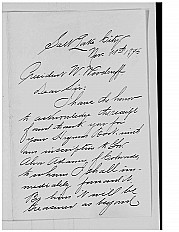 Salt Lake City
Nov. 18th, 1912
President W. Woodruff
Dear Sir:
I have the honor
to acknowledge the receipt
of and thank you for
your Hymn Book, with
an inscription to Sir
Alva Adams, of Colorado,
to whom I shall im-
mediately forward it.
By him it will be
treasured as beyond